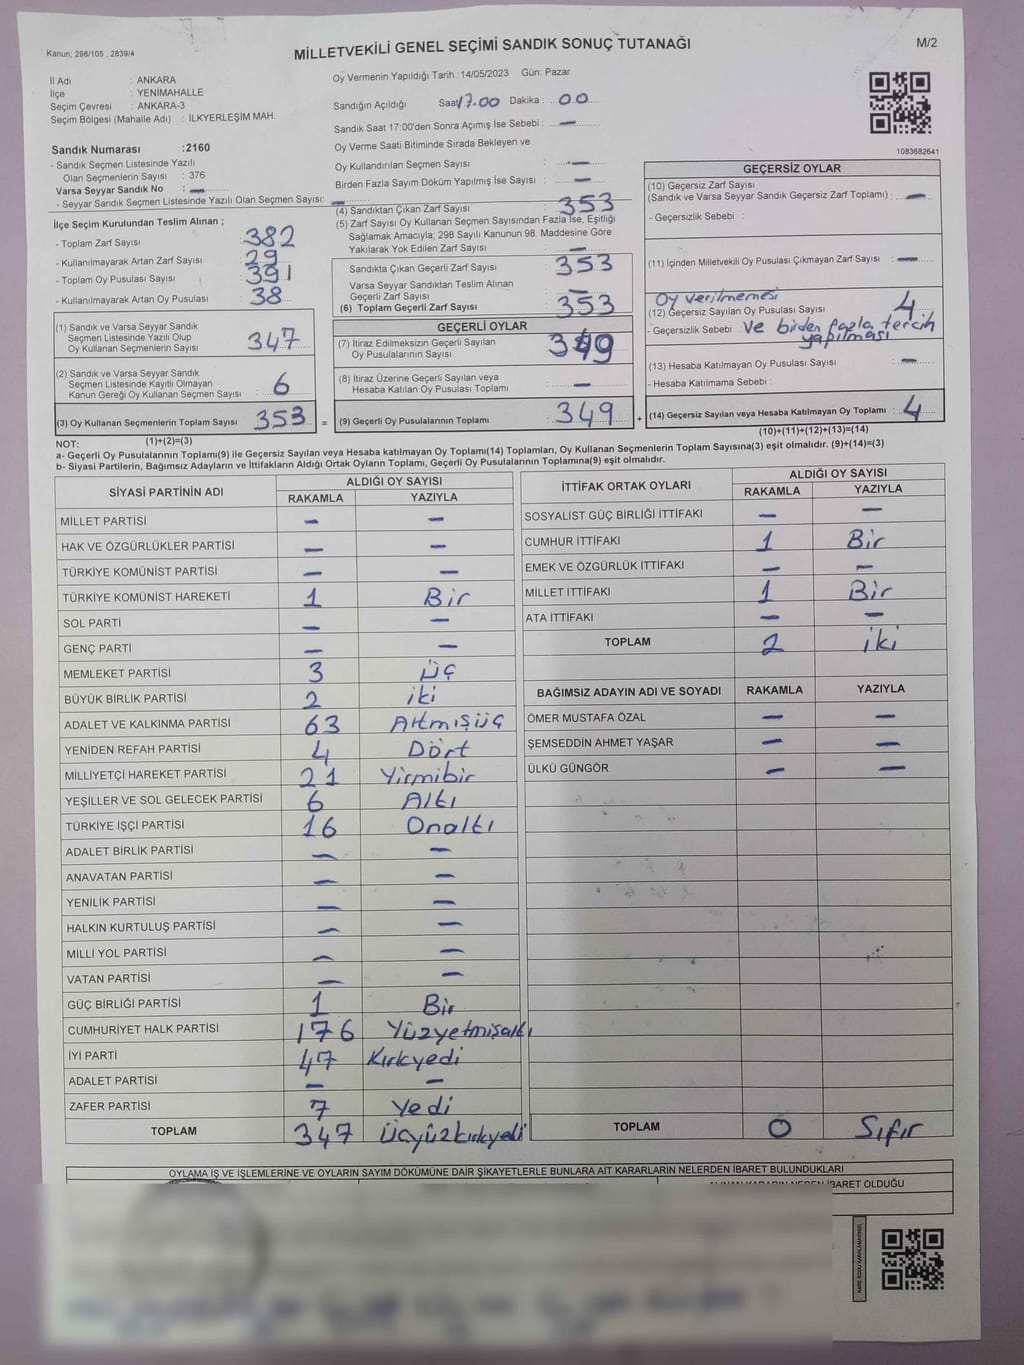 Kanun; 298/105 , 2839/4
MİLLETVEKİLİ GENEL SEÇİMİ SANDIK SONUÇ TUTANAĞI
M/2
İl Adı : ANKARA
İlçe : YENİMAHALLE
Seçim Çevresi : ANKARA-3
Seçim Bölgesi (Mahalle Adı) : İLKYERLEŞİM MAH.
Oy Vermenin Yapıldığı Tarih :14/05/2023 Gün: Pazar
Sandığın Açıldığı Saat 17.00 Dakika : 00
Sandık Saat 17:00'den Sonra Açımış İse Sebebi : —
1083682641
Sandık Numarası :2160
- Sandık Seçmen Listesinde Yazılı
Olan Seçmenlerin Sayısı : 376
Varsa Seyyar Sandık No : —
- Seyyar Sandık Seçmen Listesinde Yazılı Olan Seçmen Sayısı: —
Oy Verme Saati Bitiminde Sırada Bekleyen ve
Oy Kullandırılan Seçmen Sayısı : —
Birden Fazla Sayım Döküm Yapılmış İse Sayısı : —
İlçe Seçim Kurulundan Teslim Alınan ;
- Toplam Zarf Sayısı : 382
- Kullanılmayarak Artan Zarf Sayısı : 29
- Toplam Oy Pusulası Sayısı : 391
- Kullanılmayarak Artan Oy Pusulası : 38
(4) Sandıktan Çıkan Zarf Sayısı : 353
(5) Zarf Sayısı Oy Kullanan Seçmen Sayısından Fazla İse, Eşitliği
Sağlamak Amacıyla; 298 Sayılı Kanunun 98. Maddesine Göre
Yakılarak Yok Edilen Zarf Sayısı : —
Sandıkta Çıkan Geçerli Zarf Sayısı : 353
Varsa Seyyar Sandıktan Teslim Alınan
Geçerli Zarf Sayısı : —
(6) Toplam Geçerli Zarf Sayısı : 353
(1) Sandık ve Varsa Seyyar Sandık
Seçmen Listesinde Yazılı Olup
Oy Kullanan Seçmenlerin Sayısı : 347
(2) Sandık ve Varsa Seyyar Sandık
Seçmen Listesinde Kayıtlı Olmayan
Kanun Gereği Oy Kullanan Seçmen Sayısı : 6
(3) Oy Kullanan Seçmenlerin Toplam Sayısı : 353
(1)+(2)=(3)
GEÇERLİ OYLAR
(7) İtiraz Edilmeksizin Geçerli Sayılan
Oy Pusulalarının Sayısı : 349
(8) İtiraz Üzerine Geçerli Sayılan veya
Hesaba Katılan Oy Pusulası Toplamı : —
= (9) Geçerli Oy Pusulalarının Toplamı : 349 +
GEÇERSİZ OYLAR
(10) Geçersiz Zarf Sayısı
(Sandık ve Varsa Seyyar Sandık Geçersiz Zarf Toplamı) : —
- Geçersizlik Sebebi :
(11) İçinden Milletvekili Oy Pusulası Çıkmayan Zarf Sayısı : —
Oy verilmemesi
(12) Geçersiz Sayılan Oy Pusulası Sayısı : 4
- Geçersizlik Sebebi : ve birden fazla tercih
yapılması
(13) Hesaba Katılmayan Oy Pusulası Sayısı : —
- Hesaba Katılmama Sebebi :
(14) Geçersiz Sayılan veya Hesaba Katılmayan Oy Toplamı : 4
(10)+(11)+(12)+(13)=(14)
NOT:
a- Geçerli Oy Pusulalarının Toplamı(9) ile Geçersiz Sayılan veya Hesaba katılmayan Oy Toplamı(14) Toplamları, Oy Kullanan Seçmenlerin Toplam Sayısına(3) eşit olmalıdır. (9)+(14)=(3)
b- Siyasi Partilerin, Bağımsız Adayların ve İttifakların Aldığı Ortak Oyların Toplamı, Geçerli Oy Pusulalarının Toplamına(9) eşit olmalıdır.
SİYASİ PARTİNİN ADI
ALDIĞI OY SAYISI
RAKAMLA YAZIYLA
MİLLET PARTİSİ — —
HAK VE ÖZGÜRLÜKLER PARTİSİ — —
TÜRKİYE KOMÜNİST PARTİSİ — —
TÜRKİYE KOMÜNİST HAREKETİ 1 Bir
SOL PARTİ — —
GENÇ PARTİ — —
MEMLEKET PARTİSİ 3 Üç
BÜYÜK BİRLİK PARTİSİ 2 iki
ADALET VE KALKINMA PARTİSİ 63 Altmışüç
YENİDEN REFAH PARTİSİ 4 Dört
MİLLİYETÇİ HAREKET PARTİSİ 21 Yirmibir
YEŞİLLER VE SOL GELECEK PARTİSİ 6 Altı
TÜRKİYE İŞÇİ PARTİSİ 16 Onaltı
ADALET BİRLİK PARTİSİ — —
ANAVATAN PARTİSİ — —
YENİLİK PARTİSİ — —
HALKIN KURTULUŞ PARTİSİ — —
MİLLİ YOL PARTİSİ — —
VATAN PARTİSİ — —
GÜÇ BİRLİĞİ PARTİSİ 1 Bir
CUMHURİYET HALK PARTİSİ 176 Yüzyetmişaltı
İYİ PARTİ 47 Kırkyedi
ADALET PARTİSİ — —
ZAFER PARTİSİ 7 Yedi
TOPLAM 347 Üçyüzkırkyedi
İTTİFAK ORTAK OYLARI
ALDIĞI OY SAYISI
RAKAMLA YAZIYLA
SOSYALİST GÜÇ BİRLİĞİ İTTİFAKI — —
CUMHUR İTTİFAKI 1 Bir
EMEK VE ÖZGÜRLÜK İTTİFAKI — —
MİLLET İTTİFAKI 1 Bir
ATA İTTİFAKI — —
TOPLAM 2 iki
BAĞIMSIZ ADAYIN ADI VE SOYADI RAKAMLA YAZIYLA
ÖMER MUSTAFA ÖZAL — —
ŞEMSEDDİN AHMET YAŞAR — —
ÜLKÜ GÜNGÖR — —
TOPLAM 0 Sıfır
OYLAMA İŞ VE İŞLEMLERİNE VE OYLARIN SAYIM DÖKÜMÜNE DAİR ŞİKAYETLERLE BUNLARA AİT KARARLARIN NELERDEN İBARET BULUNDUKLARI
İBARET OLDUĞU